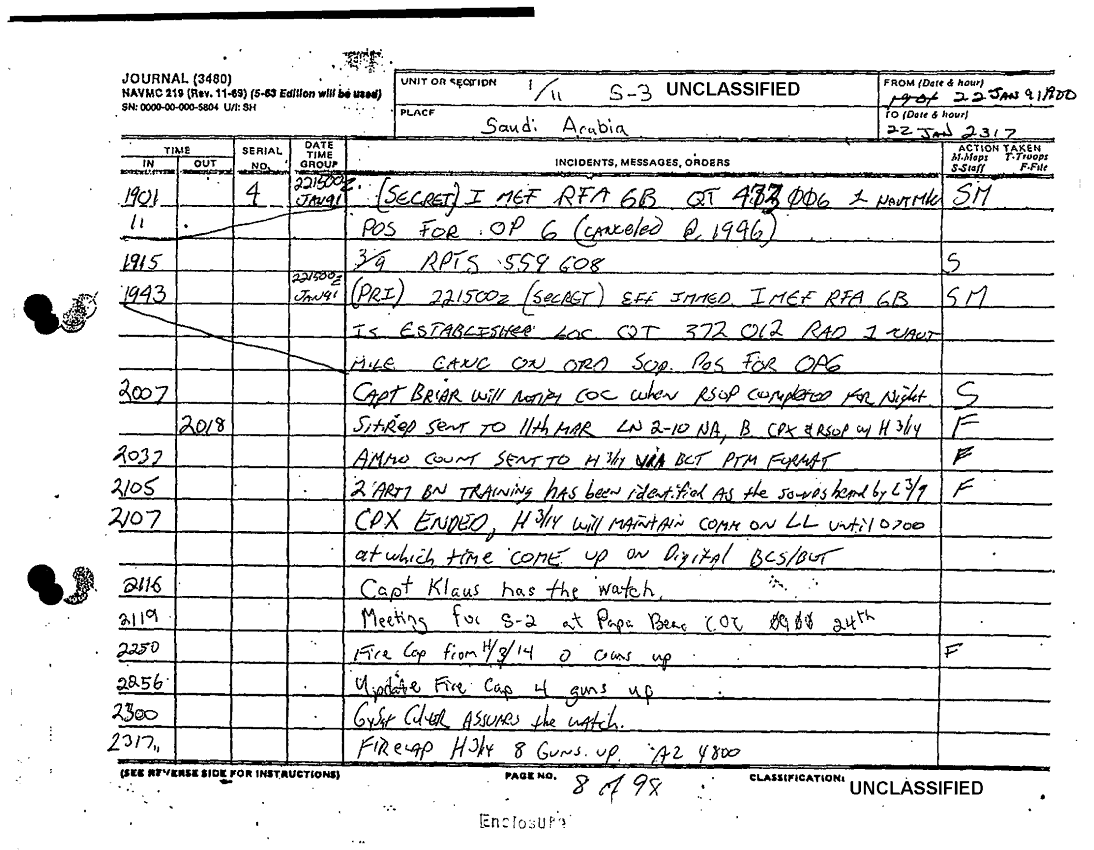 JOURNAL (3480)
NAVMC 219 (Rev. 11-69) (5-63 Edition will be used)
SN: 0000-00-000-5804 U/I: SH
UNIT OR SECTION 1/11 S-3 UNCLASSIFIED
PLACE Saudi Arabia
FROM (Date & hour)
22 JAN 91 1900
TO (Date & hour)
22 JAN 2317
TIME IN OUT SERIAL NO. DATE TIME GROUP INCIDENTS, MESSAGES, ORDERS ACTION TAKEN M-Maps T-Troops S-Staff F-File
1901 4 221500Z JAN91 (SECRET) I MEF RFA 6B QT 006 1 NAUT Mile SM
11 POS FOR OP 6 (CANCELED @ 1946)
1915 3/9 RPTS 559 608 S
1943 221500Z JAN91 (PRI) 221500Z (SECRET) EFF IMMED I MEF RFA 6B SM
IS ESTABLISHED LOC QT 372 012 RAD 1 NAUT
MILE CANC ON ORD SOP. POS FOR OP6
2007 CAPT BRIAR will notify COC when RSOP completed for Night. S
2018 SitRep SENT TO 11th MAR LN 2-10 NA, B CPX & RSOP w/ H 3/14 F
2037 AMMO COUNT SENT TO H 3/14 VIA BCT PTM FORMAT F
2105 2 ARTY BN TRAINING has been identified AS the sounds heard by L 3/9 F
2107 CPX ENDED, H 3/14 will MAINTAIN COMM ON LL until 0700
at which time COME UP ON Digital BCS/BCT
2116 Capt Klaus has the watch.
2119 Meeting for S-2 at Papa Bear COC 24th
2250 Fire Cap from H/3/14 0 Guns up F
2256 Update Fire Cap 4 guns up
2300 GySgt ASSUMES the watch.
2317 FIRECAP H 3/14 8 GUNS. UP. AZ 4800
(SEE REVERSE SIDE FOR INSTRUCTIONS) PAGE NO. 8 of 98 CLASSIFICATION: UNCLASSIFIED
Enclosure